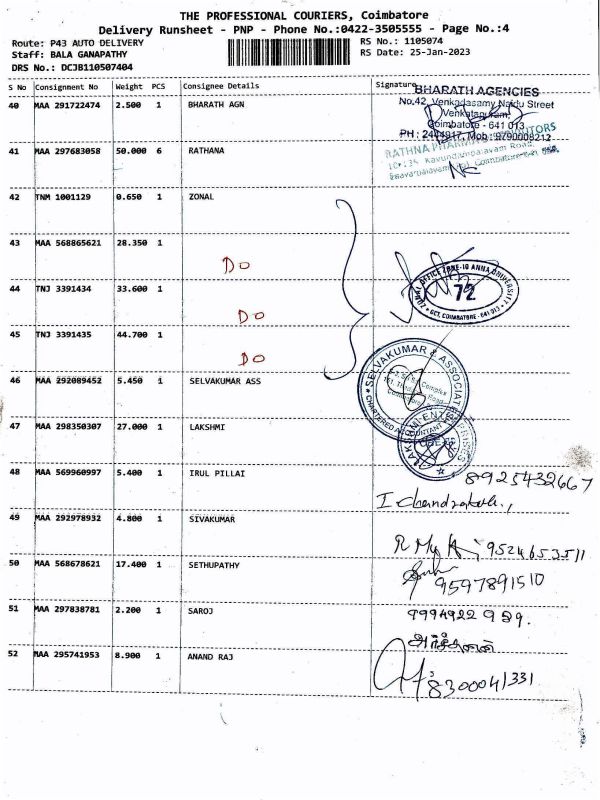 THE PROFESSIONAL COURIERS, Coimbatore
Delivery Runsheet - PNP - Phone No.:0422-3505555 - Page No.:4
Route: P43 AUTO DELIVERY
RS No.: 1105074
Staff: BALA GANAPATHY
RS Date: 25-Jan-2023
DRS No.: DCJB110507404
S No Consignment No Weight PCS Consignee Details Signature
40 MAA 291722474 2.500 1 BHARATH AGN
BHARATH AGENCIES
No.42, Venkadasamy Naidu Street
Venkatapuram,
Coimbatore - 641 013
PH : 2444917, Mob: 9790008212
41 MAA 297683058 50.000 6 RATHANA
RATHNA
Kavundampalayam Road,
Coimbatore
42 TNM 1001129 0.650 1 ZONAL
43 MAA 568865621 28.350 1
DO
44 TNJ 3391434 33.600 1
DO
ZONAL OFFICE ZONE-10 ANNA UNIVERSITY
72
GCT, COIMBATORE - 641 013
45 TNJ 3391435 44.700 1
DO
46 MAA 292089452 5.450 1 SELVAKUMAR ASS
SELVAKUMAR & ASSOCIATES
CHARTERED ACCOUNTANT
Complex
Road
47 MAA 298350307 27.000 1 LAKSHMI
48 MAA 569960997 5.400 1 IRUL PILLAI
8925432667
49 MAA 292978932 4.800 1 SIVAKUMAR
9524653511
50 MAA 568678621 17.400 1 SETHUPATHY
9597891510
51 MAA 297838781 2.200 1 SAROJ
52 MAA 295741953 8.900 1 ANAND RAJ
8300041331